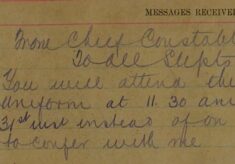 MESSAGES RECEIVE
From Chief Constabl
To all Supts
You will attend the
uniform at 11.30 am
31st inst instead of on
to confer with me